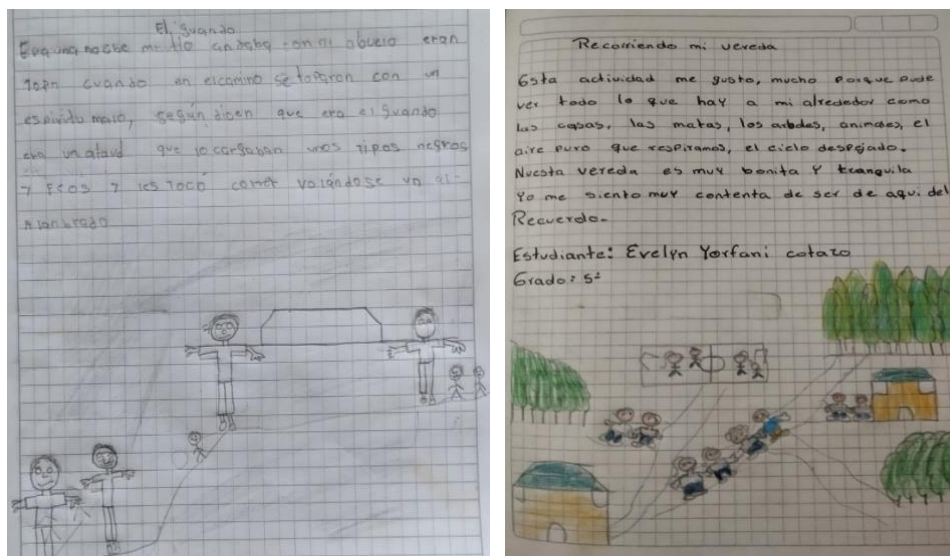 El guando
Era una noche mi tio andaba con mi abuelo eran
cuando en el camino se toparon con un
espiridu malo, según dicen que era el guando
era un ataud que lo cargaban unos tipos negros
y feos y les tocó correr volándose un al-
Alambrado
Recorriendo mi vereda
Esta actividad me gusto, mucho porque pude
ver todo lo que hay a mi alrededor como
las casas, las matas, los arboles, animales, el
aire puro que respiramos, el cielo despejado.
Nuestra vereda es muy bonita y tranquila
Yo me siento muy contenta de ser de aqui del
Recuerdo.
Estudiante: Evelyn Yorfani cotazo
Grado: 5º